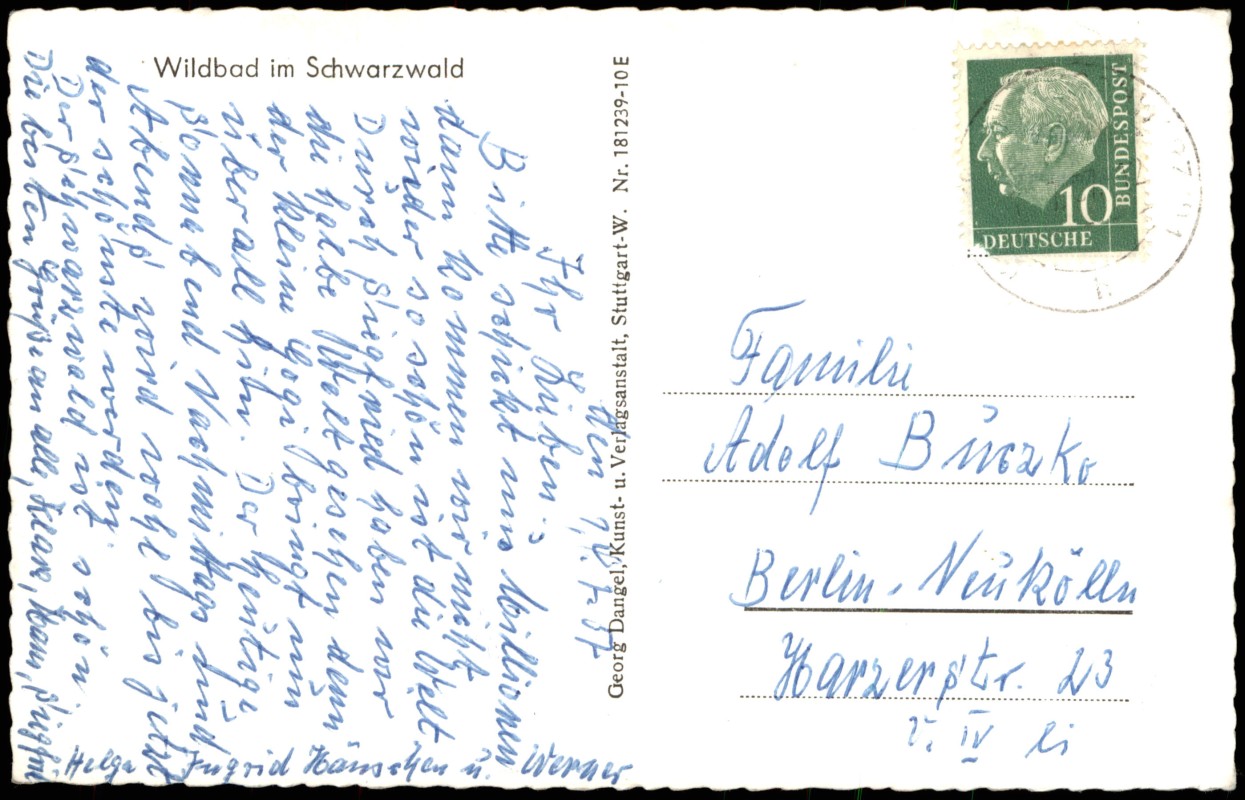 Wildbad im Schwarzwald
den 14.7.57
Ihr Lieben!
Bitte schickt uns Millionen
dann kommen wir nicht
wieder so schön ist die Welt
Durch Siegfried haben wir
die halbe Welt gesehen denn
der kleine Gogi bringt uns
überall hin. Der heutige
Sonnabend Nachmittags und
Abends wird wohl bis jetzt
der schönste werden.
Der Schwarzwald ist schön
Die besten Grüße an alle, Klara, Hans, Siegfried
Helga Ingrid Hänschen u. Werner
Georg Dangel, Kunst- u. Verlagsanstalt, Stuttgart-W. Nr. 181239-10E
DEUTSCHE
BUNDESPOST
10
Familie
Adolf Buczko
Berlin-Neukölln
Harzerstr. 23
v. IV li